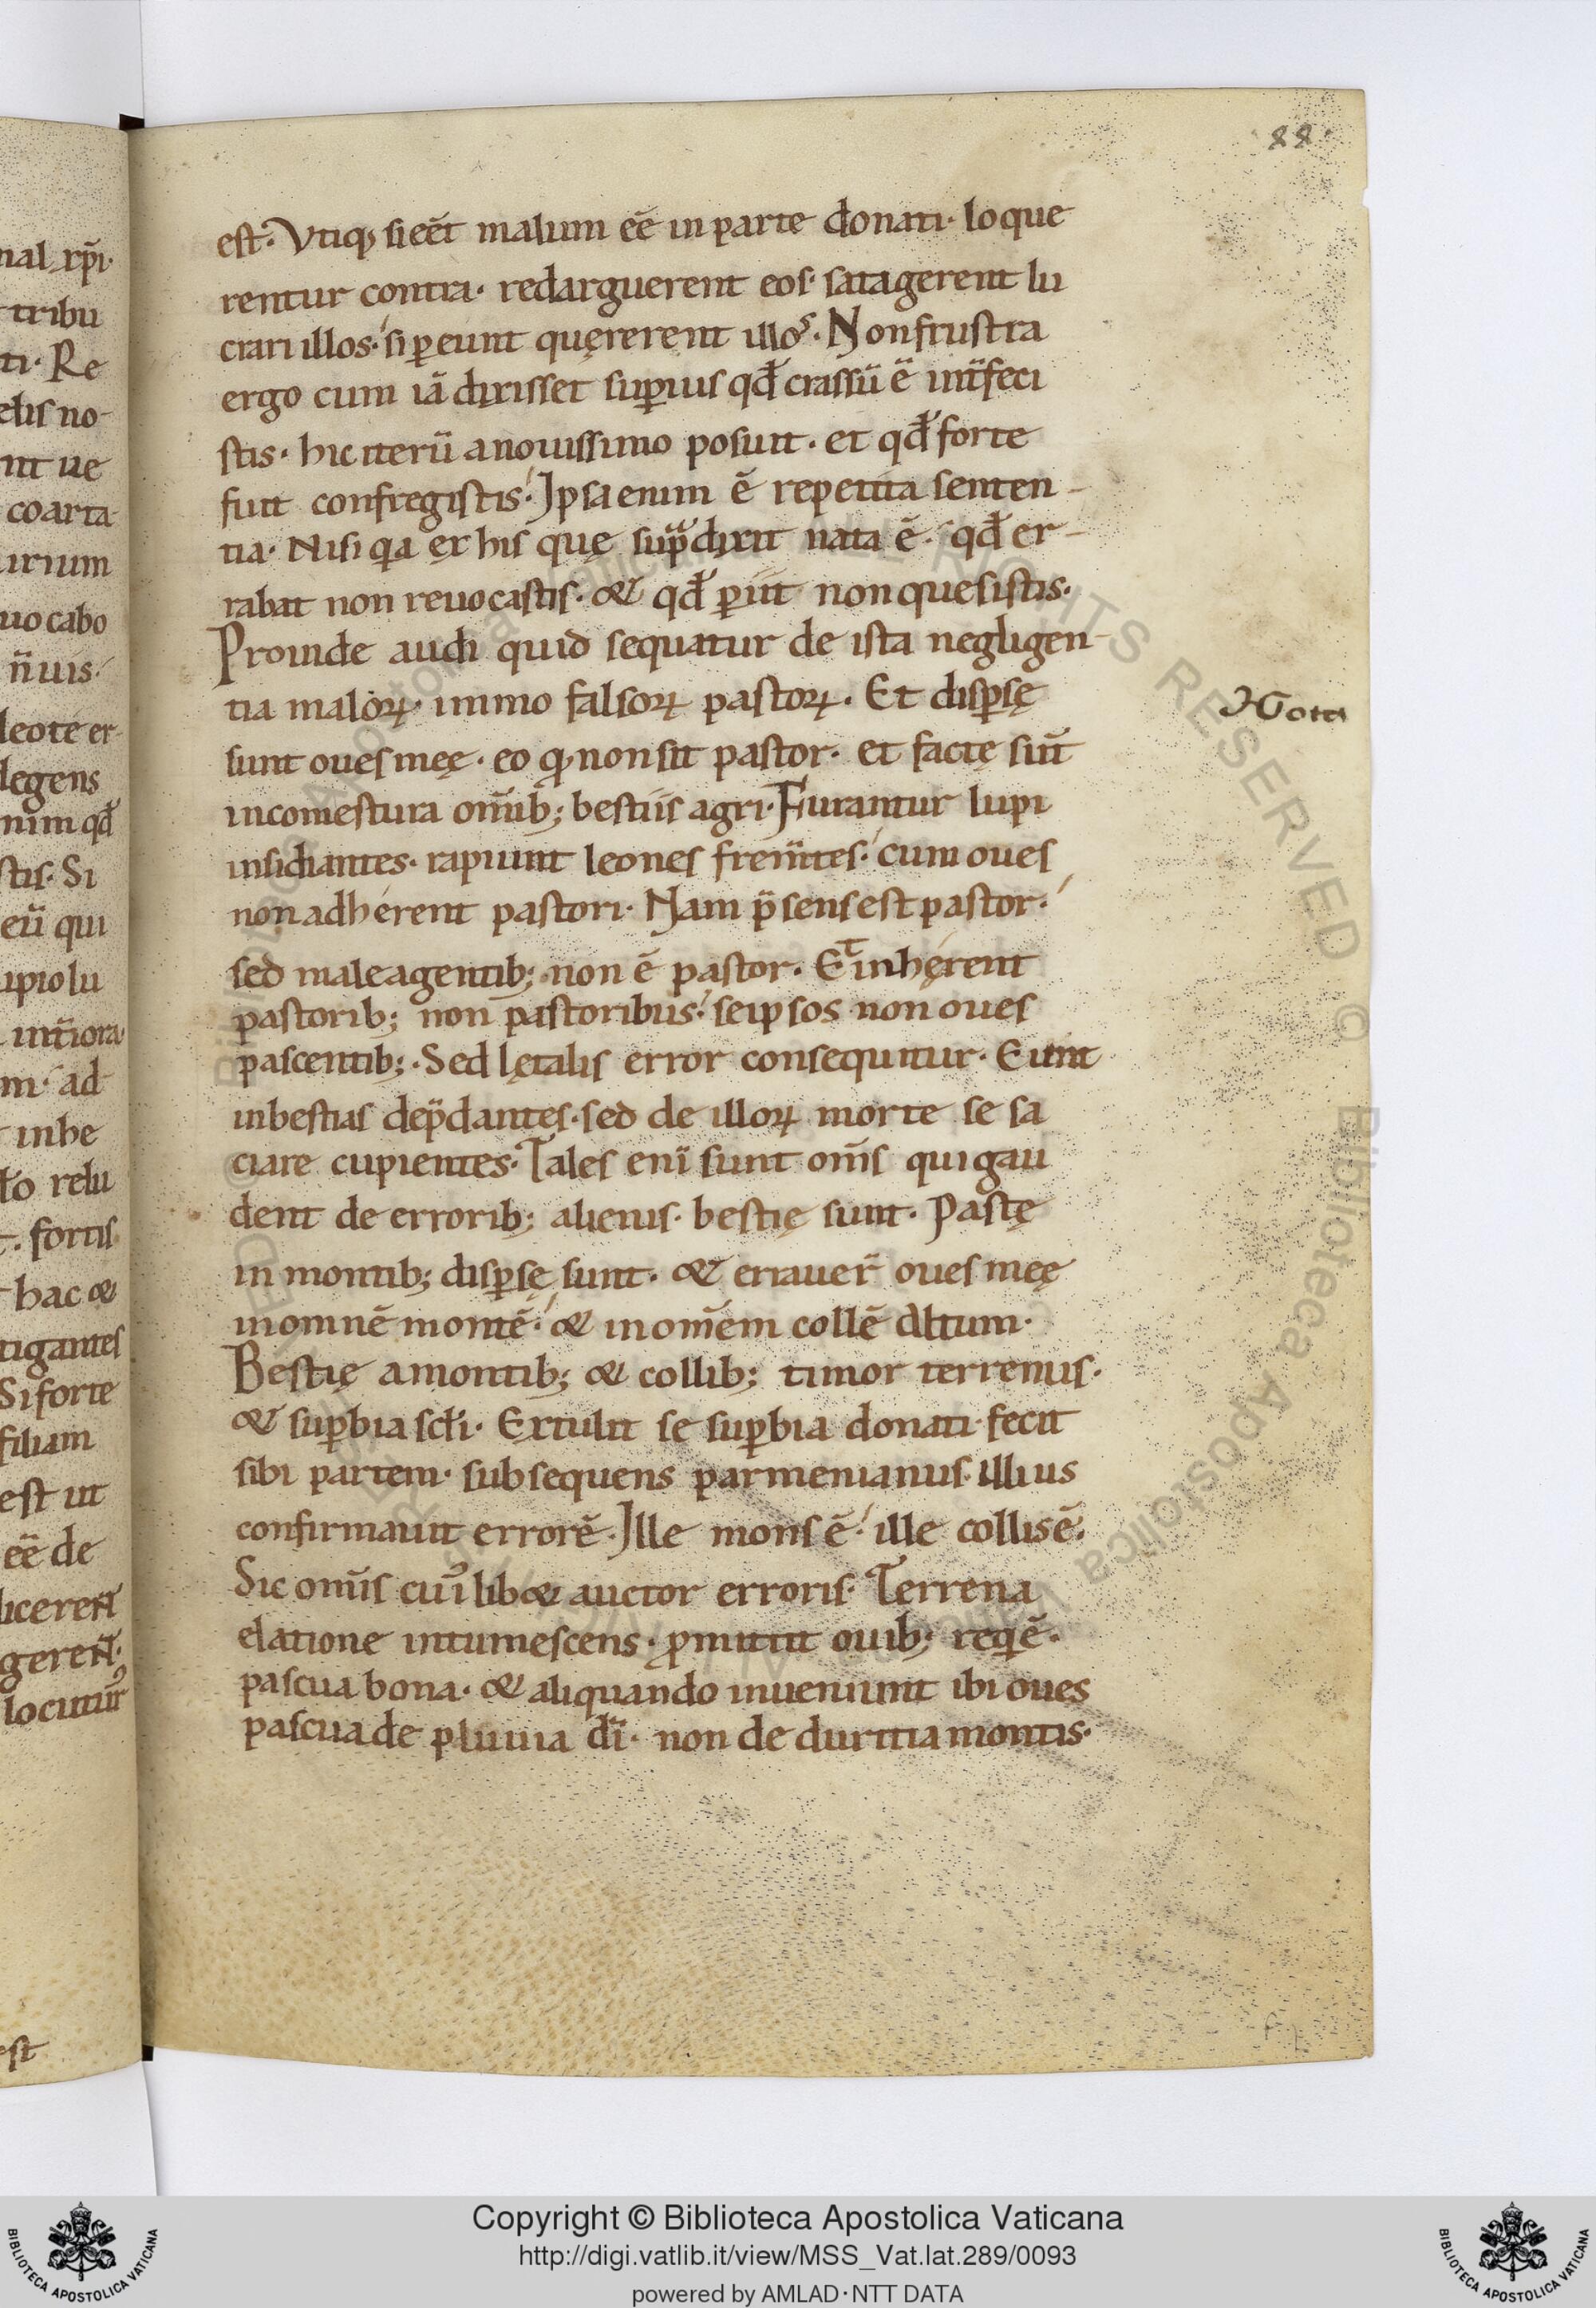 88.
est. Vtiq; si eēt malum eē in parte donati· loque
rentur contra· redarguerent eos· satagerent lu
crari illos· si pereunt quęrerent illos. Non frustra
ergo cum iā dixisset superius qđ crassū ē int̄feci
stis· hic iterū a nouissimo posuit· et qđ forte
fuit confregistis· Ipsa enim ē repetita senten-
tia· Nisi qa ex his quę supͣ dixit nata ē· qđ er-
rabat non reuocastis· & qđ ꝑiit non quesistis.
Proinde audi quid sequatur de ista negligen-
tia maloꝝ· immo falsoꝝ pastoꝝ. Et disꝑsę
sunt oues meę· eo qͥ non sit pastor· et factę sūt
in comestura om̄ib; bestiis agri· Furantur lupi
insidiantes· rapiunt leones frem̄tes· cum oues
non adherent pastori· Nam p̄sens est pastor·
sed male agentib; non ē pastor. Et inhęrent
pastorib; non pastoribus· se ipsos non oues
pascentib;. Sed lętalis error consequitur. Eunt
in bestias dep̄dantes· sed de illoꝝ morte se sa
ciare cupientes. Tales enī sunt om̄s qui gau
dent de errorib; alienis· bestię sunt. Pastę
in montib; disꝑsę sunt. & errauer̄ oues meę
in omnē montē· & in om̄em collē altum.
Bestię a montib; & collib; timor terrenus·
& suꝑbia scł̄i· Extulit se suꝑbia donati· fecit
sibi partem· subsequens parmenianus· illius
confirmauit errorē. Ille mons ē· ille collis ē.
Sic om̄is cuiꝰlib& auctor erroris· Terrena
elatione intumescens· ꝓmittit ouib; reqͥē.
pascua bona· & aliquando inueniunt ibi oues
pascua de pluuia dī· non de duritia montis·
Nota
Copyright © Biblioteca Apostolica Vaticana
http://digi.vatlib.it/view/MSS_Vat.lat.289/0093
powered by AMLAD·NTT DATA
BIBLIOTECA APOSTOLICA VATICANA
BIBLIOTECA APOSTOLICA VATICANA